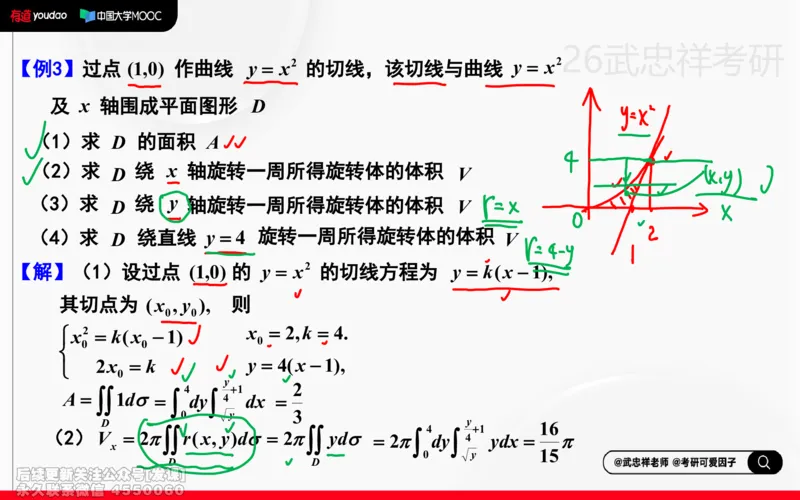 有道 youdao 中国大学MOOC
26武忠祥考研
【例3】过点 (1,0) 作曲线 y = x² 的切线，该切线与曲线 y = x²
及 x 轴围成平面图形 D
（1）求 D 的面积 A
（2）求 D 绕 x 轴旋转一周所得旋转体的体积 V
（3）求 D 绕 y 轴旋转一周所得旋转体的体积 V r=x
（4）求 D 绕直线 y = 4 旋转一周所得旋转体的体积 V r=4-y
y=x²
4
(x,y)
0 1 2 x
【解】（1）设过点 (1,0) 的 y = x² 的切线方程为 y = k(x − 1),
其切点为 (x₀, y₀), 则
{ x₀² = k(x₀ − 1) x₀ = 2, k = 4.
2x₀ = k y = 4(x − 1),
A = ∬_D 1dσ = ∫_0^4 dy ∫_{√y}^{y/4+1} dx = 2/3
（2）V_x = 2π∬_D r(x, y)dσ = 2π∬_D ydσ = 2π∫_0^4 dy ∫_{√y}^{y/4+1} ydx = 16/15 π
后续更新关注公众号[发课]
永久联系微信 4550060
@武忠祥老师 @考研可爱因子